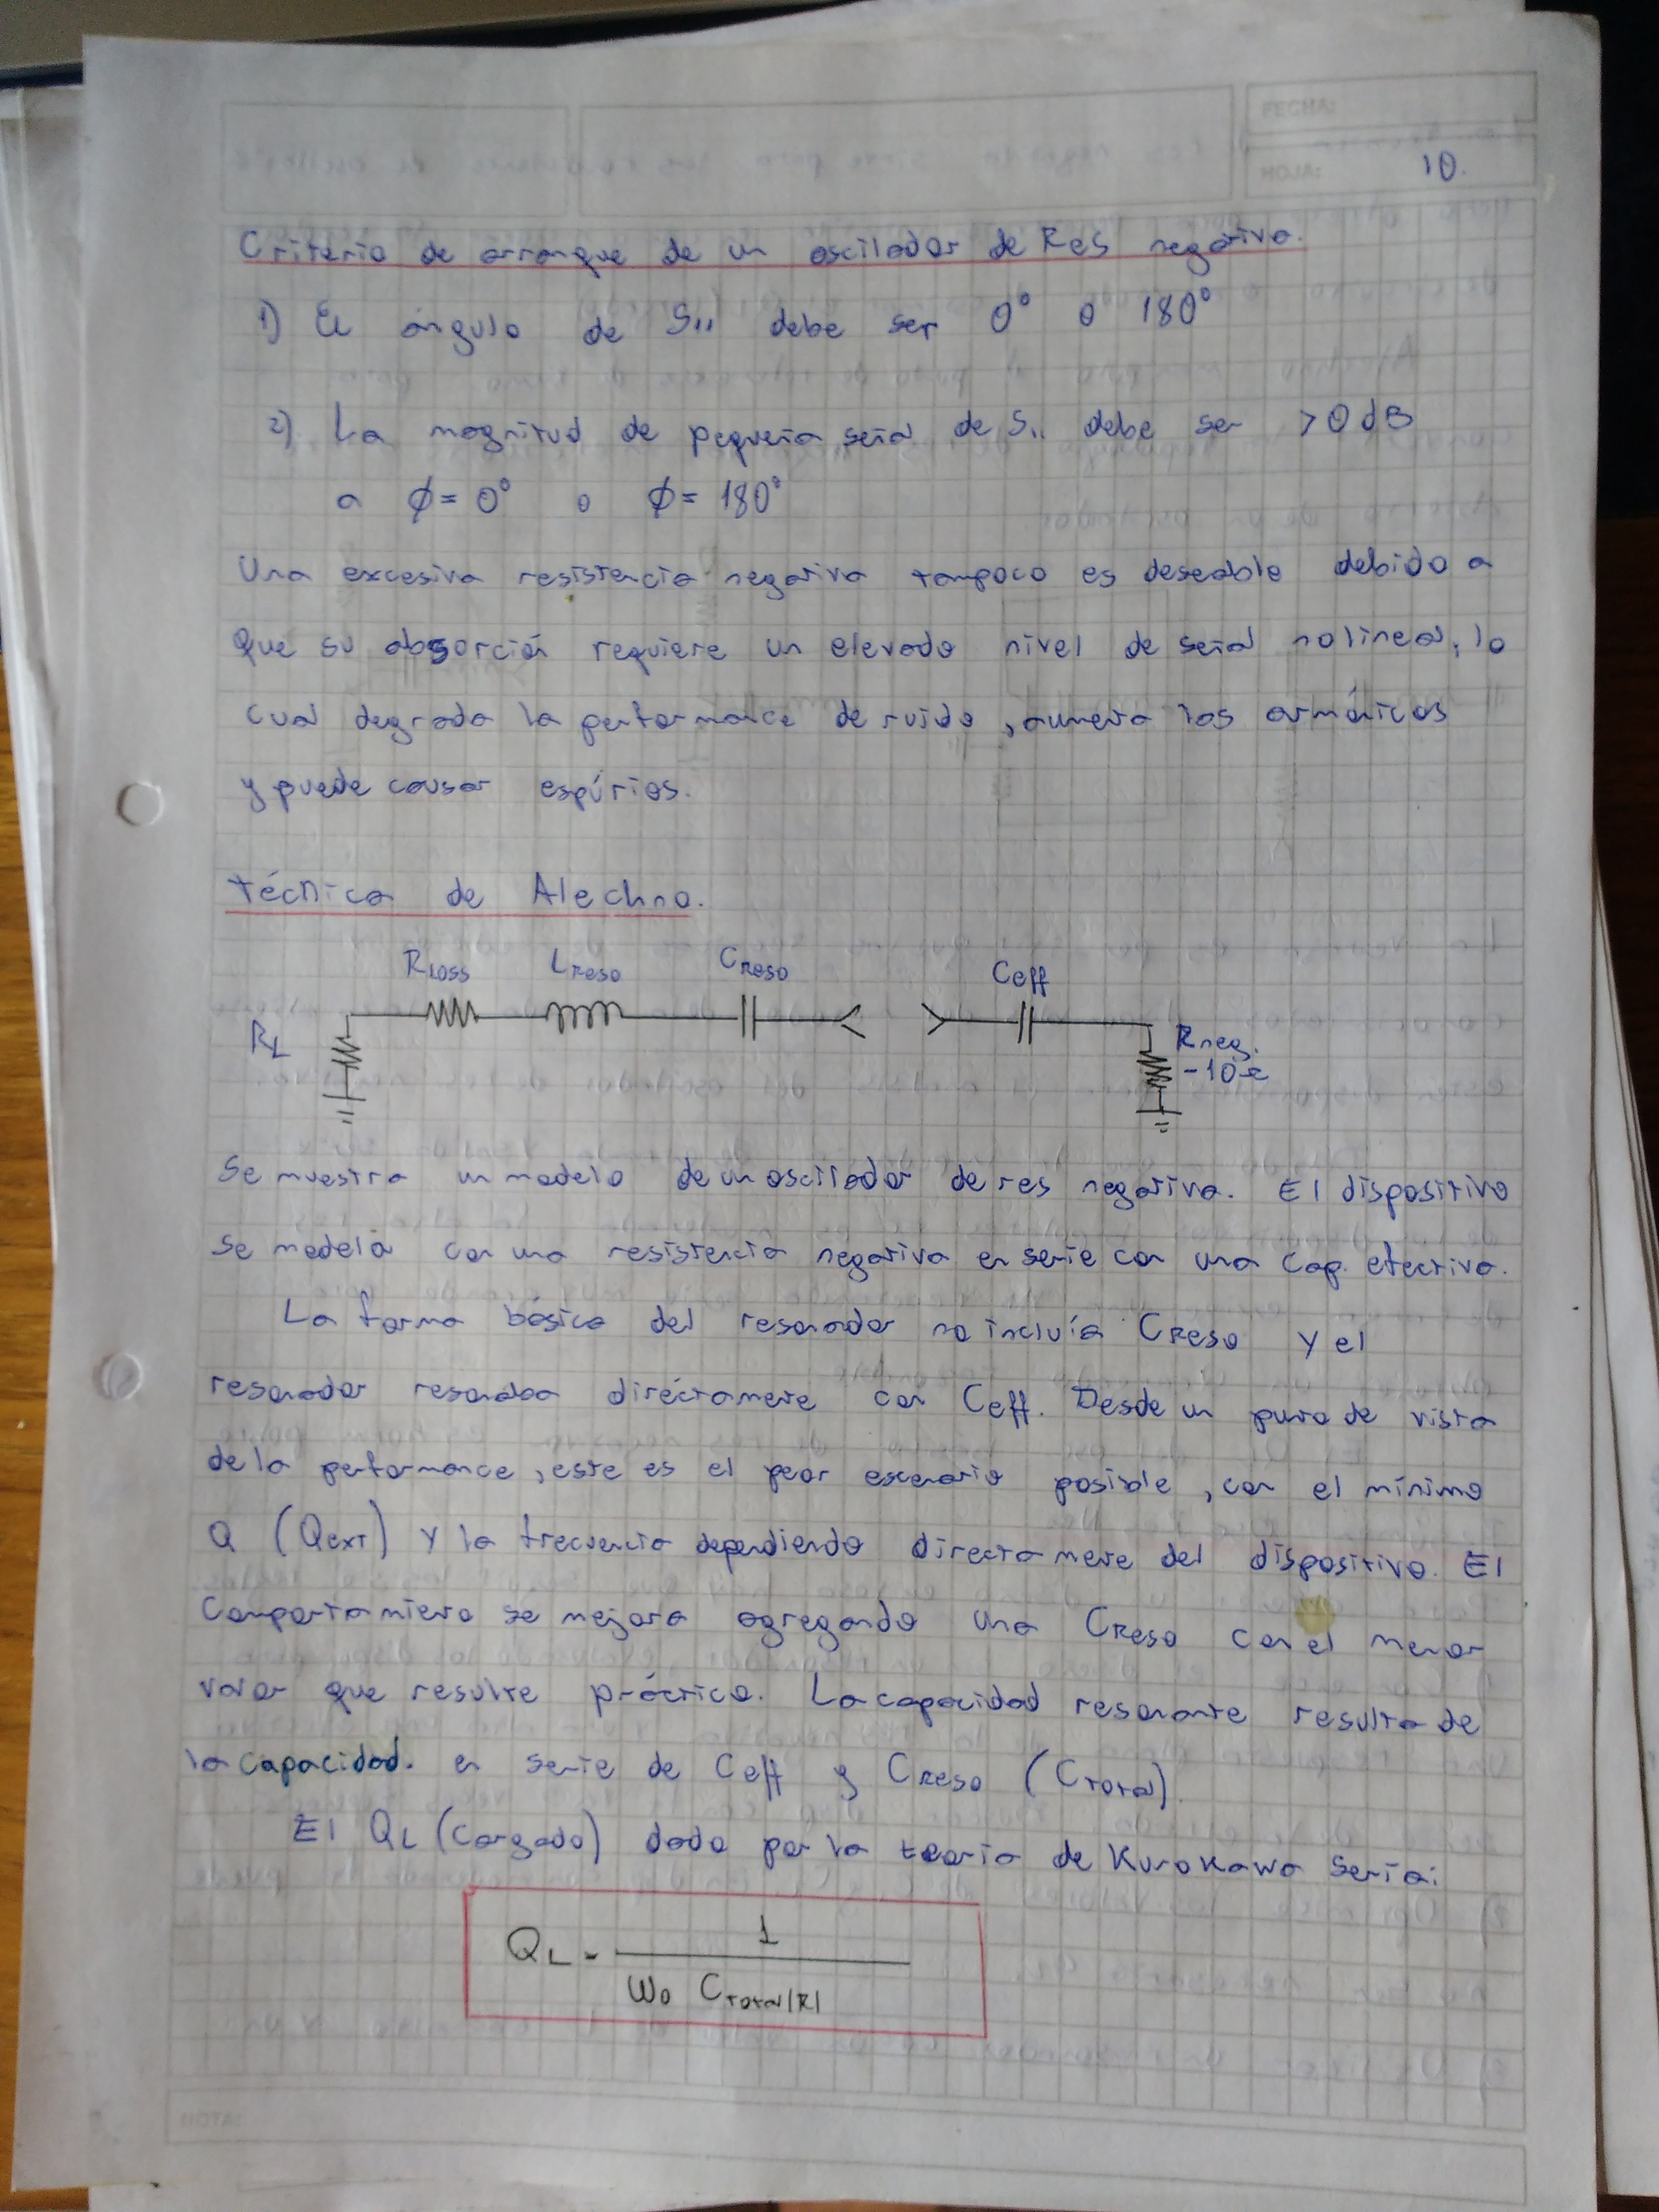 FECHA:
HOJA: 10.
Criterio de arranque de un oscilador de Res negativa.
1) El ángulo de S11 debe ser 0° o 180°
2) La magnitud de pequeña señal de S11 debe ser >0 dB
a ϕ= 0° o ϕ= 180°
Una excesiva resistencia negativa tampoco es deseable debido a
que su absorción requiere un elevado nivel de señal nolineal, lo
cual degrada la performance de ruido, aumenta los armónicos
y puede causar espúrios.
técnica de Alechno.
RLOSS LRESO CRESO Ceff
RL Rneg.
-10Ω
Se muestra un modelo de un oscilador de res negativa. El dispositivo
se modela con una resistencia negativa en serie con una cap. efectiva.
La forma básica del resonador no incluía CRESO y el
resonador resonaba diréctamente con Ceff. Desde un punto de vista
de la performance, este es el peor escenario posible, con el mínimo
Q (QEXT) y la frecuencia dependiendo directamente del dispositivo. El
comportamiento se mejora agregando una CRESO con el menor
valor que resulte práctico. La capacidad resonante resulta de
la capacidad. en serie de Ceff y CRESO (CTotal)
El QL (cargado) dado por la teoría de Kurokawa sería:
QL = 1 / ω0 CTotal|R|
NOTA: